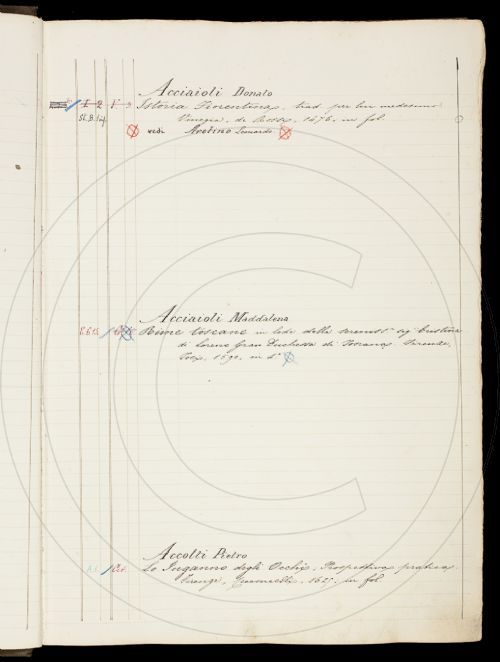 Acciaioli Donato
1 2 1
Istoria Fiorentina, trad. per lui medesimo
St. B. Inf.
Vinegia, de Rossi, 1476, in fol.
vedi Aretino Leonardo
Acciaioli Maddalena
Rime toscane in lode della sereniss. sig. Cristina
di Loreno Gran Duchessa di Toscana. Firenze,
Tosi, 1590, in 4°
Accolti Pietro
Lo Inganno degli Occhi, Prospettiva pratica.
Firenze, 1625, in fol.